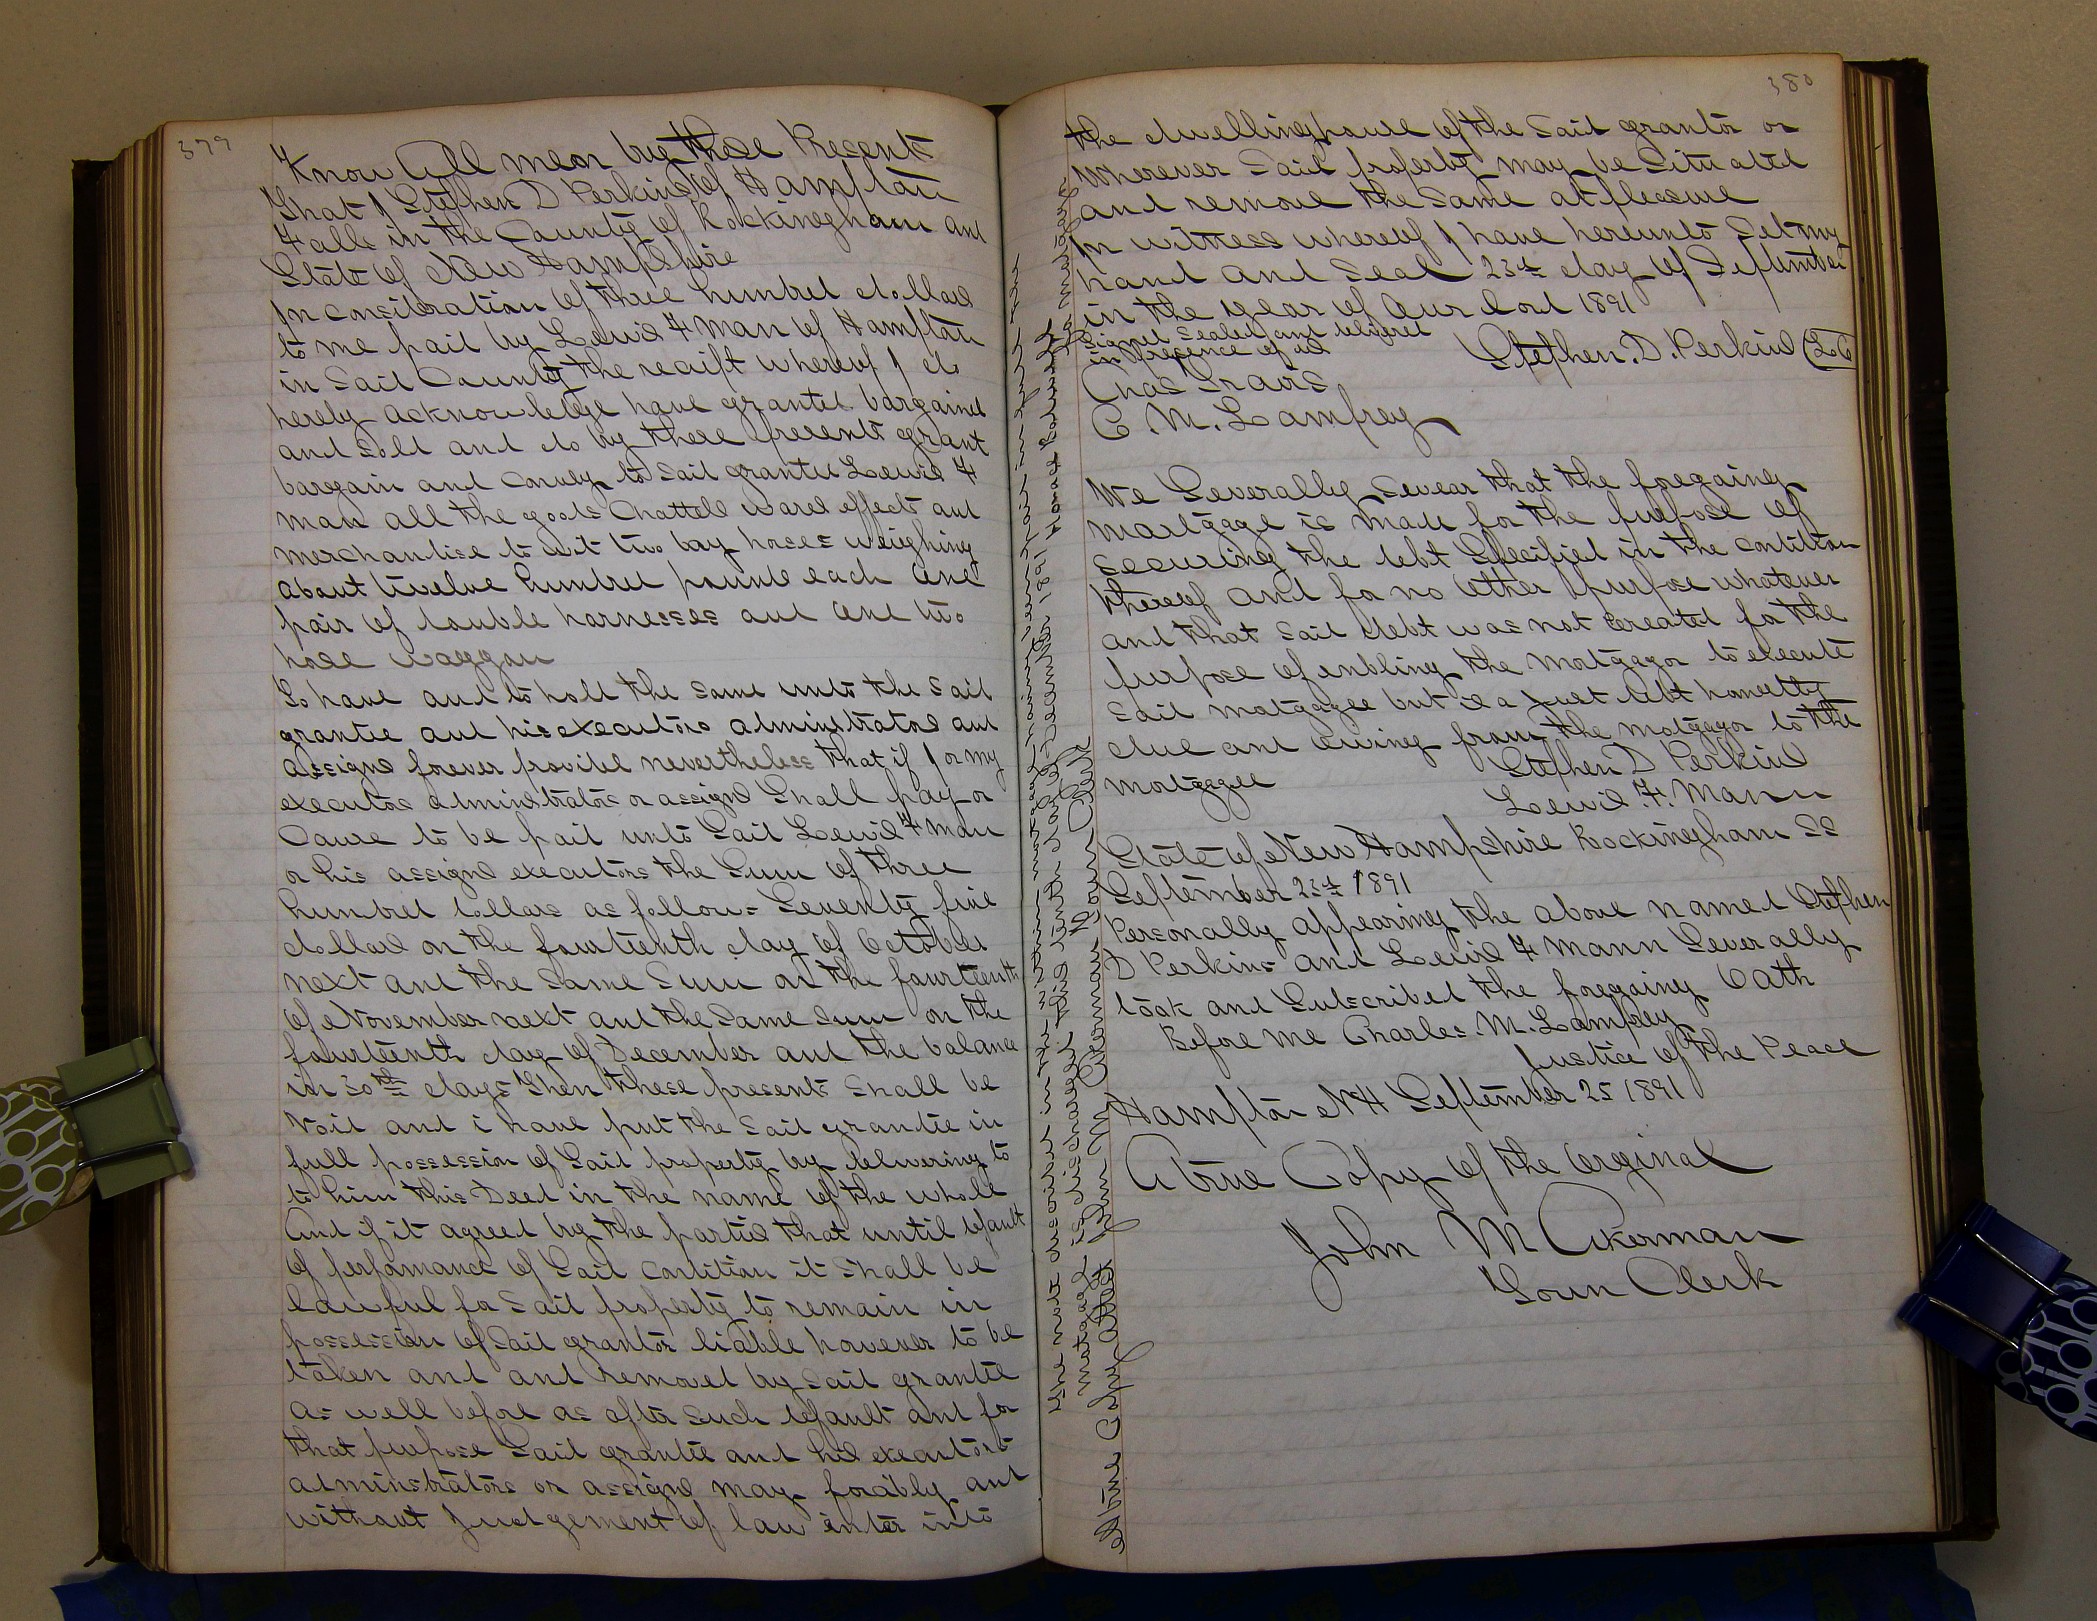 379
Know All men by these Presents
That I Stephen D Perkins of Hampton
Falls in the County of Rockingham and
State of New Hampshire
In consideration of three hundred dollars
to me paid by Lewis F Man of Hampton
in Said County the receipt whereof I do
herely acknowledge have granted bargained
and Sold and do by these presents grant
bargain and convey to Said grantee Lewis F
Man all the goods Chattels wares effects and
merchandise to wit two bay horses weighing
about twelve hundred pounds each one
pair of double harnesses and one two
hose waggon
To have and to hold the same unto the Said
grantee and his executors administrators and
assigns forever provided nevertheless that if I or my
executors administrators or assigns Shall pay or
Cause to be paid unto Said Lewis F Man
or his assigns executors the Sum of three
hundred dollars as follows Seventy five
dollars on the fourteenth day of October
next and the Same Sum on the fourteenth
of November next and the Same Sum on the
fourteenth day of December and the balance
in 30th days then these presents Shall be
Void and i have put the Said grantee in
full possession of Said property by delivering to
to him this Deed in the name of the whole
And if it agreed by the parties that until default
of performance of Said condition it Shall be
lawful for Said property to remain in
possession of Said grantor liable however to be
taken and and removed by Said grantee
as well before as after Such default and for
that purpose Said grantee and his executors
administrators or assigns may forcibly and
without Judgement of law enter into
380
the dwellinghouse of the Said grantor or
Wherever Said property may be Situated
and remove the Same at pleasure
In witness whereof I have hereunto Set my
hand and Seal 23d day of September
in the year of Our Lord 1891
Signed Sealed and delivered
in presence of us
Stephen. D. Perkins (L S)
Chas Travis
C. M. Lamprey
We Severally Swear that the foregoing
mortgage is made for the purpose of
securing the debt Specified in the condition
thereof and for no other purpose whatever
and that Said debt was not created for the
purpose of enbling the Mortgagor to execute
Said mortgagee but is a just debt honestly
due and owing from the mortgagor to the
mortgagee
Stephen D Perkins
Lewis. F. Mann
State of New Hampshire Rockingham SS
September 23d 1891
Personally appearing the above named Stephen
D Perkins and Lewis F Mann Severally
took and Subscribed the foregoing Oath
Before Me Charles. M. Lamprey
Justice of the Peace
Hampton NH September 25 1891
A true Copy of the Orginal
John M Akerman
Town Clerk
The note discribed in the within mortgage having been paid in full Said
mortgage is discharged this 10th day of December 1891
A true Copy Attest John M Akerman Town Clerk